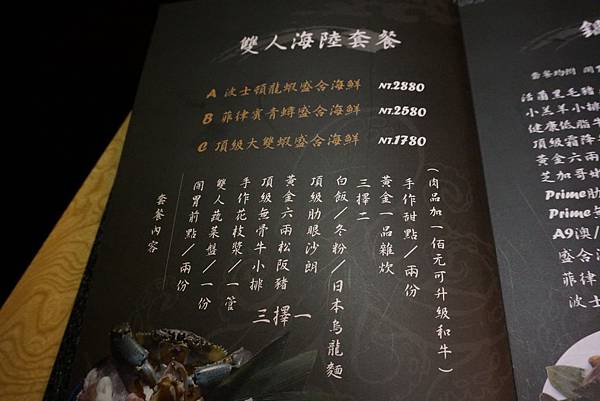 雙人海陸套餐
A 波士頓龍蝦盛合海鮮 NT.2880
B 菲律賓青蟳盛合海鮮 NT.2580
C 頂級大雙蝦盛合海鮮 NT.1780
套餐內容
開胃前點/兩份
雙人蔬菜盤/一份
手作花枝漿/一管
頂級無骨牛小排
黃金六兩松阪豬
頂級肋眼沙朗
三擇一
白飯/冬粉/日本烏龍麵
三擇二
黃金一品雜炊
手作甜點/兩份
(肉品加一佰元可升級和牛)
套餐均附 開
活菌黑毛豬
小羔羊小排
健康低脂牛
頂級霜降
黃金六兩
芝加哥
Prime肋
Prime無
A9澳/
盛合海
菲律
波士